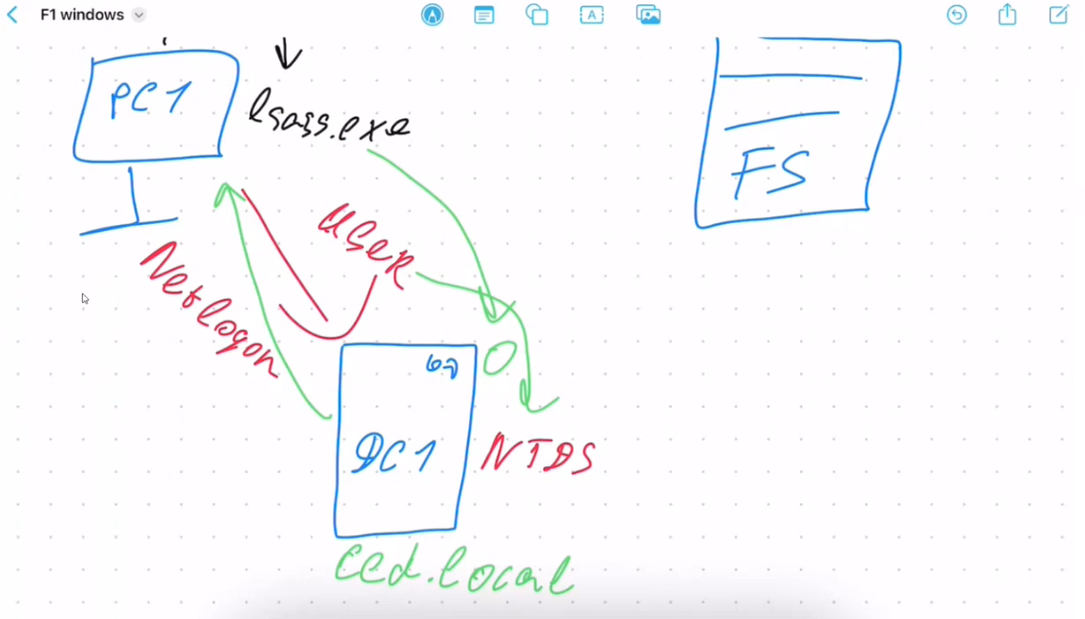 F1 windows
PC1
lsass.exe
FS
USER
Netlogon
DC1
NTDS
ced.local